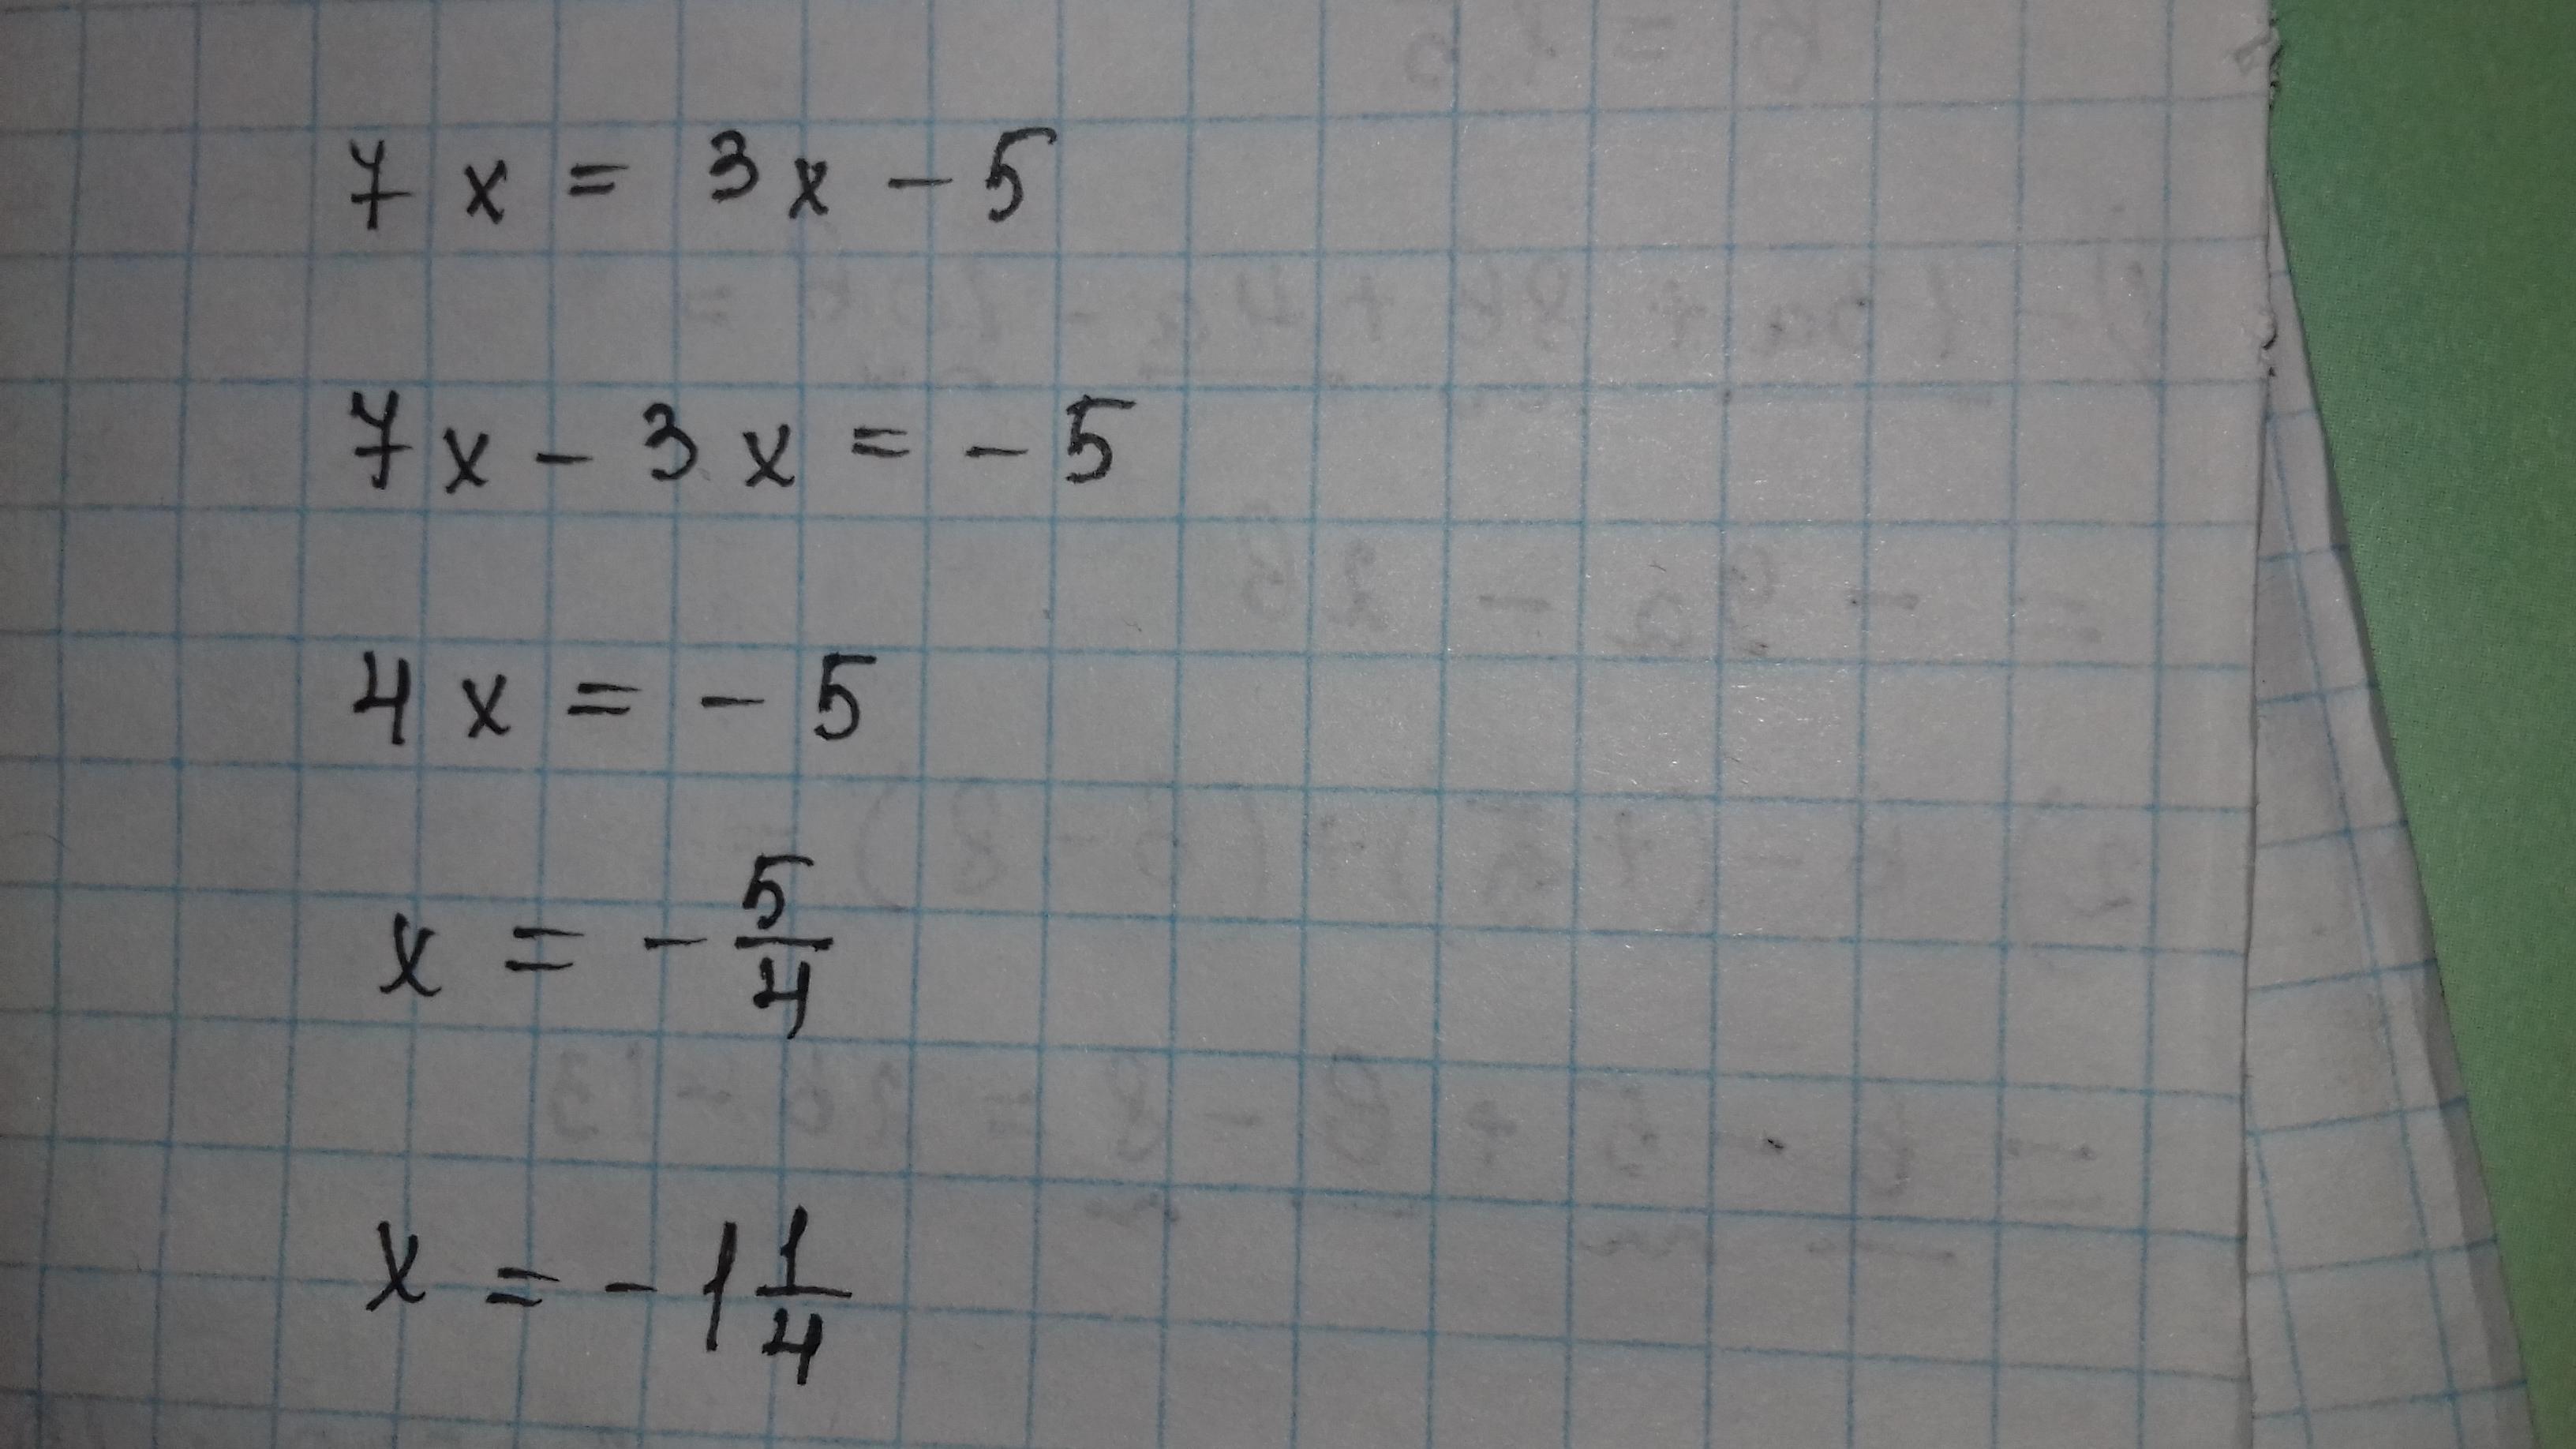 7x = 3x - 5
7x - 3x = - 5
4x = - 5
x = - 5/4
x = - 1 1/4